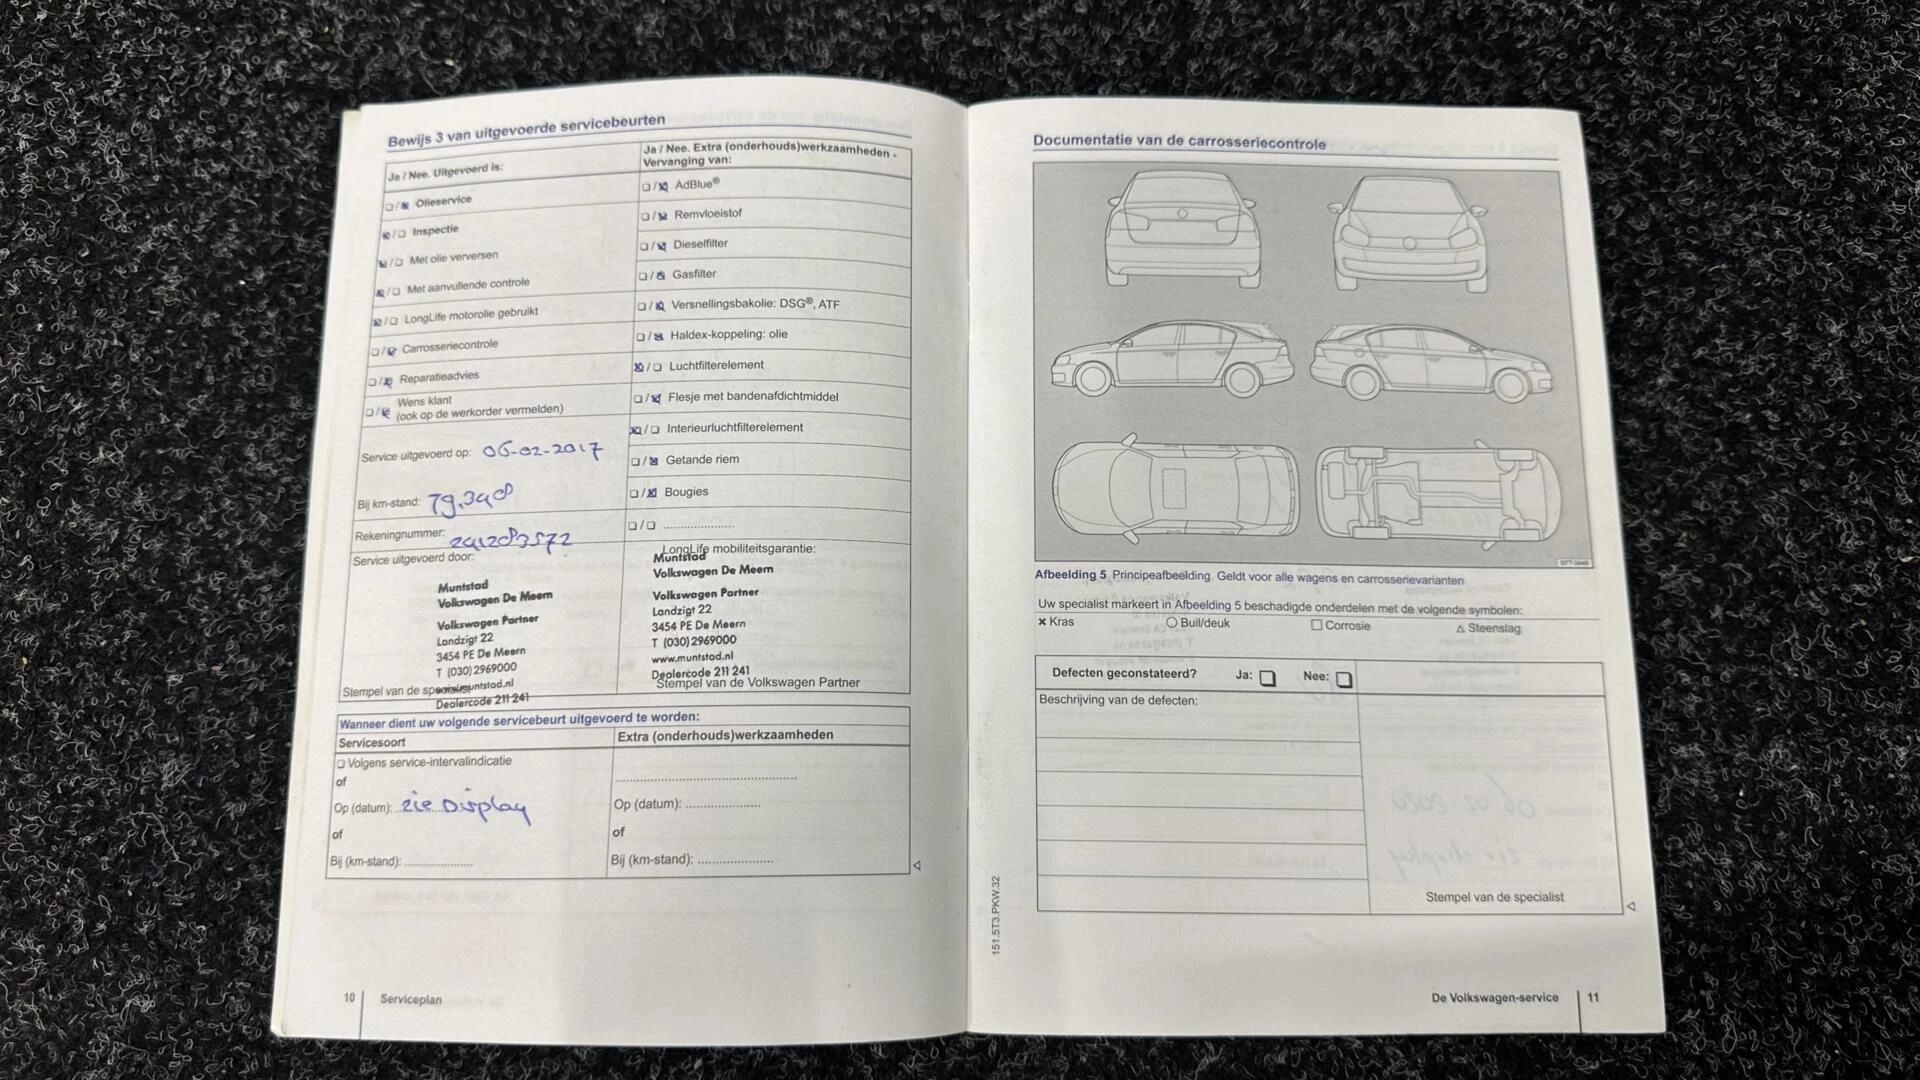 Bewijs 3 van uitgevoerde servicebeurten
Ja / Nee. Uitgevoerd is:
☐/☒ Olieservice
☒/☐ Inspectie
☒/☐ Met olie verversen
☒/☐ Met aanvullende controle
☒/☐ LongLife motorolie gebruikt
☐/☒ Carrosseriecontrole
☐/☒ Reparatieadvies
☐/☒ Wens klant
(ook op de werkorder vermelden)
Service uitgevoerd op: 06-02-2017
Bij km-stand: 79.348
Rekeningnummer:
Service uitgevoerd door:
Muntstad
Volkswagen De Meern
Volkswagen Partner
Landzigt 22
3454 PE De Meern
T (030) 2969000
Stempel van de
Dealercode 211 241
Ja / Nee. Extra (onderhouds)werkzaamheden -
Vervanging van:
☐/☒ AdBlue®
☐/☒ Remvloeistof
☐/☒ Dieselfilter
☐/☒ Gasfilter
☐/☒ Versnellingsbakolie: DSG®, ATF
☐/☒ Haldex-koppeling: olie
☒/☐ Luchtfilterelement
☐/☒ Flesje met bandenafdichtmiddel
☒/☐ Interieurluchtfilterelement
☐/☒ Getande riem
☐/☒ Bougies
☐/☐ .....................
LongLife mobiliteitsgarantie:
Muntstad
Volkswagen De Meern
Volkswagen Partner
Landzigt 22
3454 PE De Meern
T (030) 2969000
www.muntstad.nl
Dealercode 211 241
Stempel van de Volkswagen Partner
Wanneer dient uw volgende servicebeurt uitgevoerd te worden:
Servicesoort
☐ Volgens service-intervalindicatie
of
Op (datum): zie Display
of
Bij (km-stand): ....................
Extra (onderhouds)werkzaamheden
.....................................................
Op (datum): ......................
of
Bij (km-stand): ......................
10
Serviceplan
Documentatie van de carrosseriecontrole
Afbeelding 5 Principeafbeelding. Geldt voor alle wagens en carrosserievarianten
Uw specialist markeert in Afbeelding 5 beschadigde onderdelen met de volgende symbolen:
× Kras ○ Buil/deuk ☐ Corrosie △ Steenslag
Defecten geconstateerd? Ja: ☐ Nee: ☐
Beschrijving van de defecten:
Stempel van de specialist
151.5T3.PKW.32
De Volkswagen-service
11